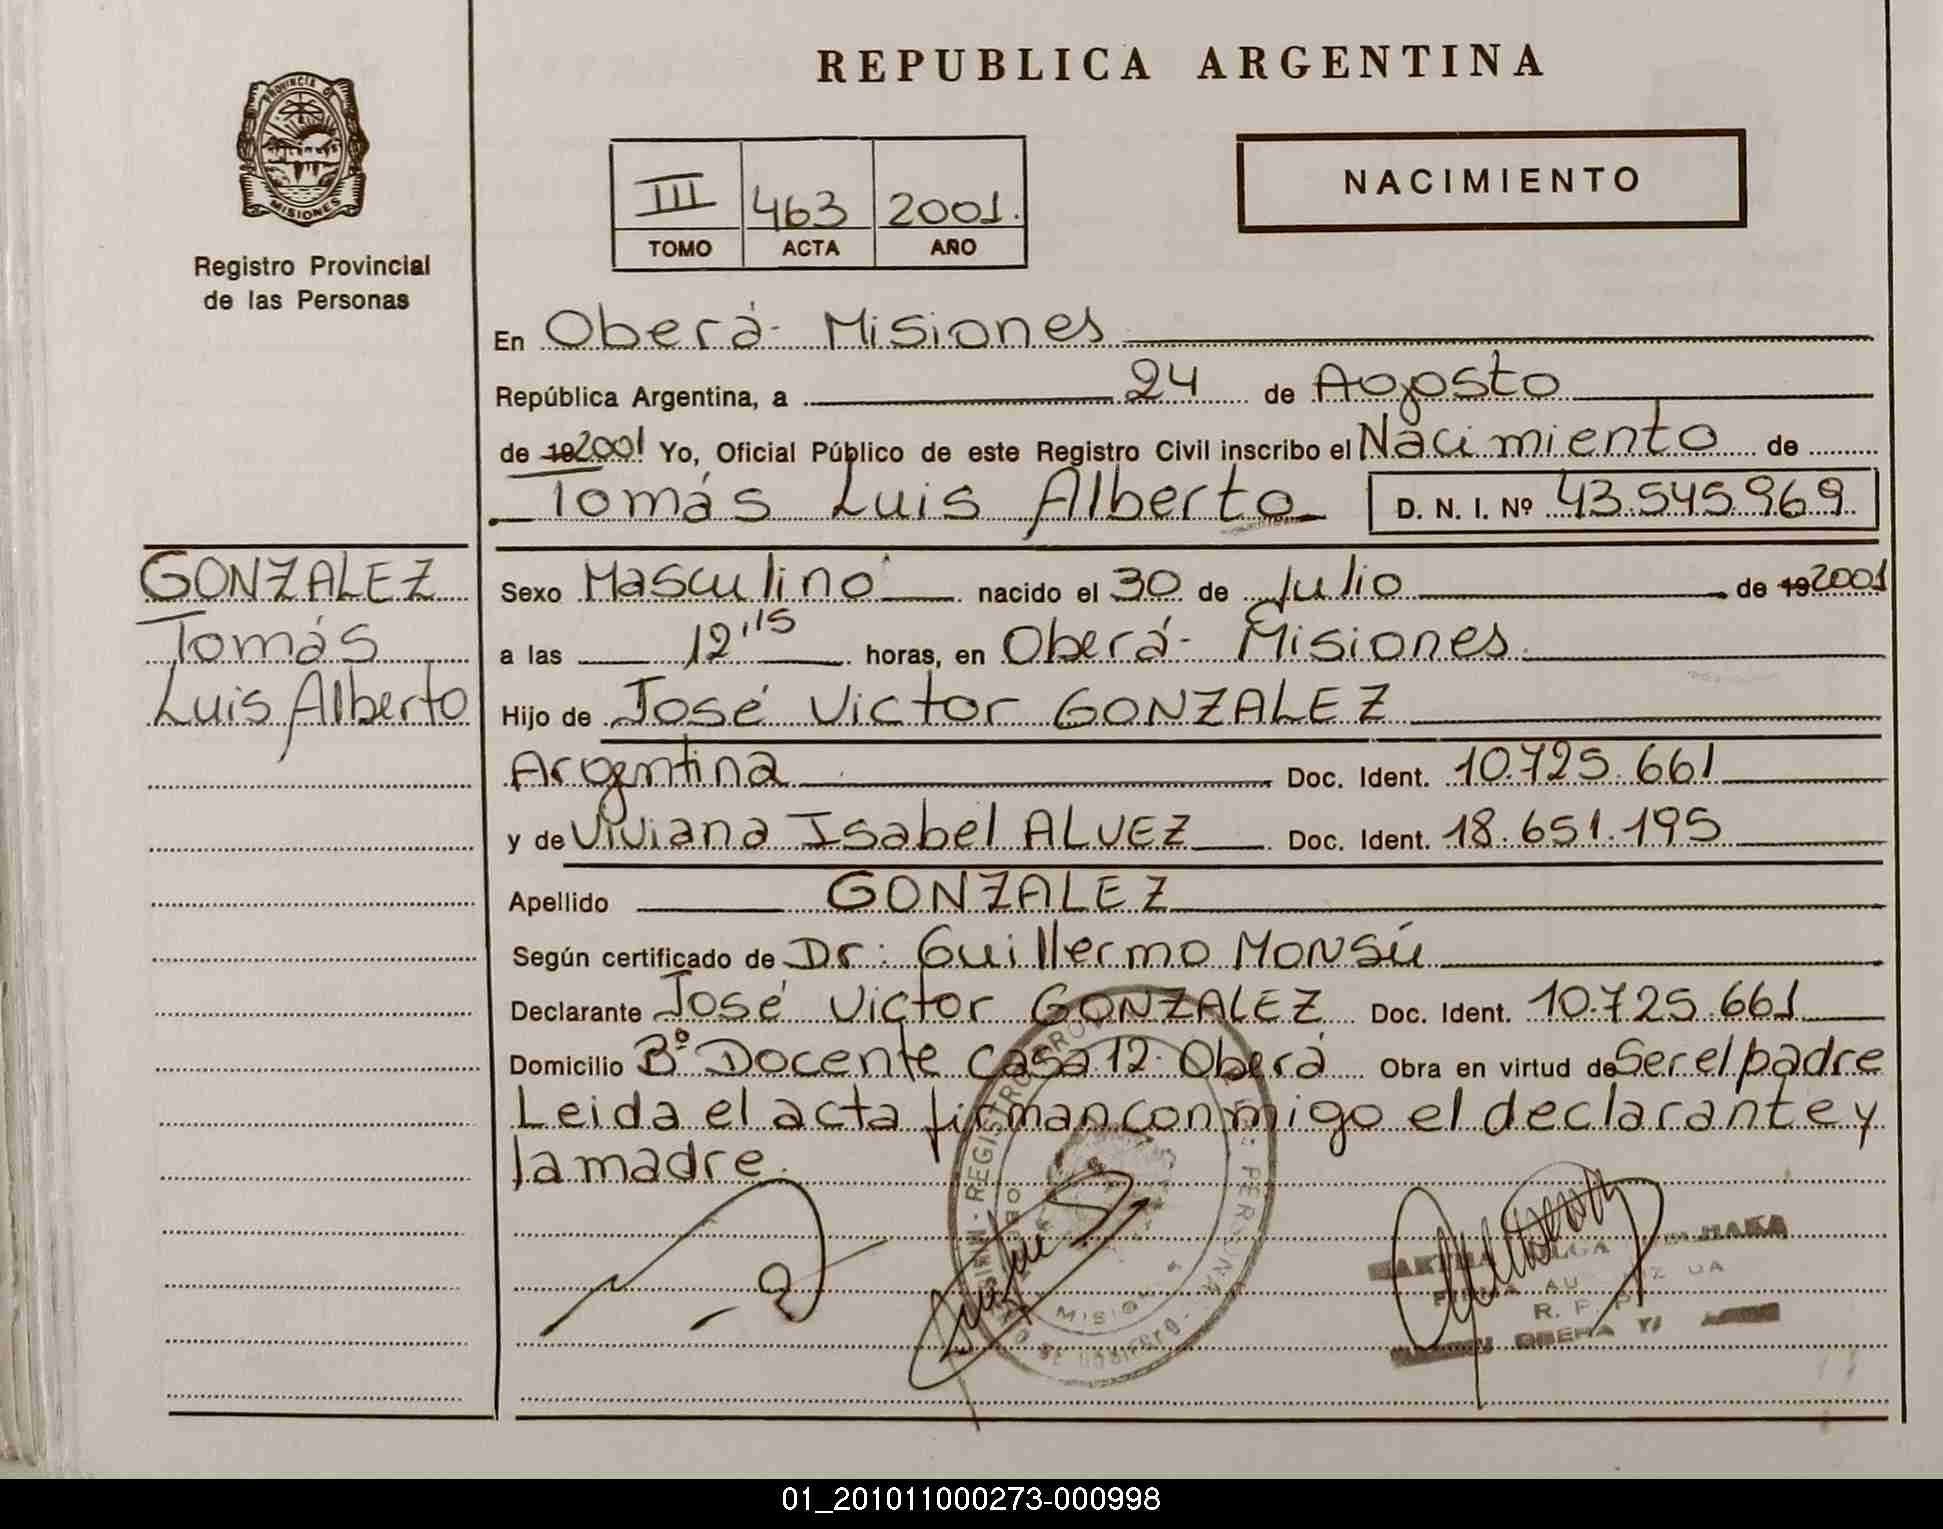 REPUBLICA ARGENTINA
PROVINCIA DE
MISIONES
Registro Provincial
de las Personas
III 463 2001.
TOMO ACTA AÑO
NACIMIENTO
En Oberá- Misiones
República Argentina, a 24 de Agosto
de 19 2001 Yo, Oficial Público de este Registro Civil inscribo el Nacimiento de
Tomás Luis Alberto D. N. I. Nº 43.545.969
GONZALEZ
Tomás
Luis Alberto
Sexo Masculino nacido el 30 de Julio de 19 2001
a las 12,15 horas, en Oberá- Misiones
Hijo de José Victor GONZALEZ
Argentina Doc. Ident. 10.725.661
y de Viviana Isabel ALVEZ Doc. Ident. 18.651.195
Apellido GONZALEZ
Según certificado de Dr: Guillermo MONSÚ
Declarante José Victor GONZALEZ Doc. Ident. 10.725.661
Domicilio Bº Docente Casa 12- Oberá Obra en virtud de Ser el padre
Leida el acta firman conmigo el declarante y
la madre.
REGISTRO PERSONAS
MISIONES
R. P. P.
OBERA
01_201011000273-000998